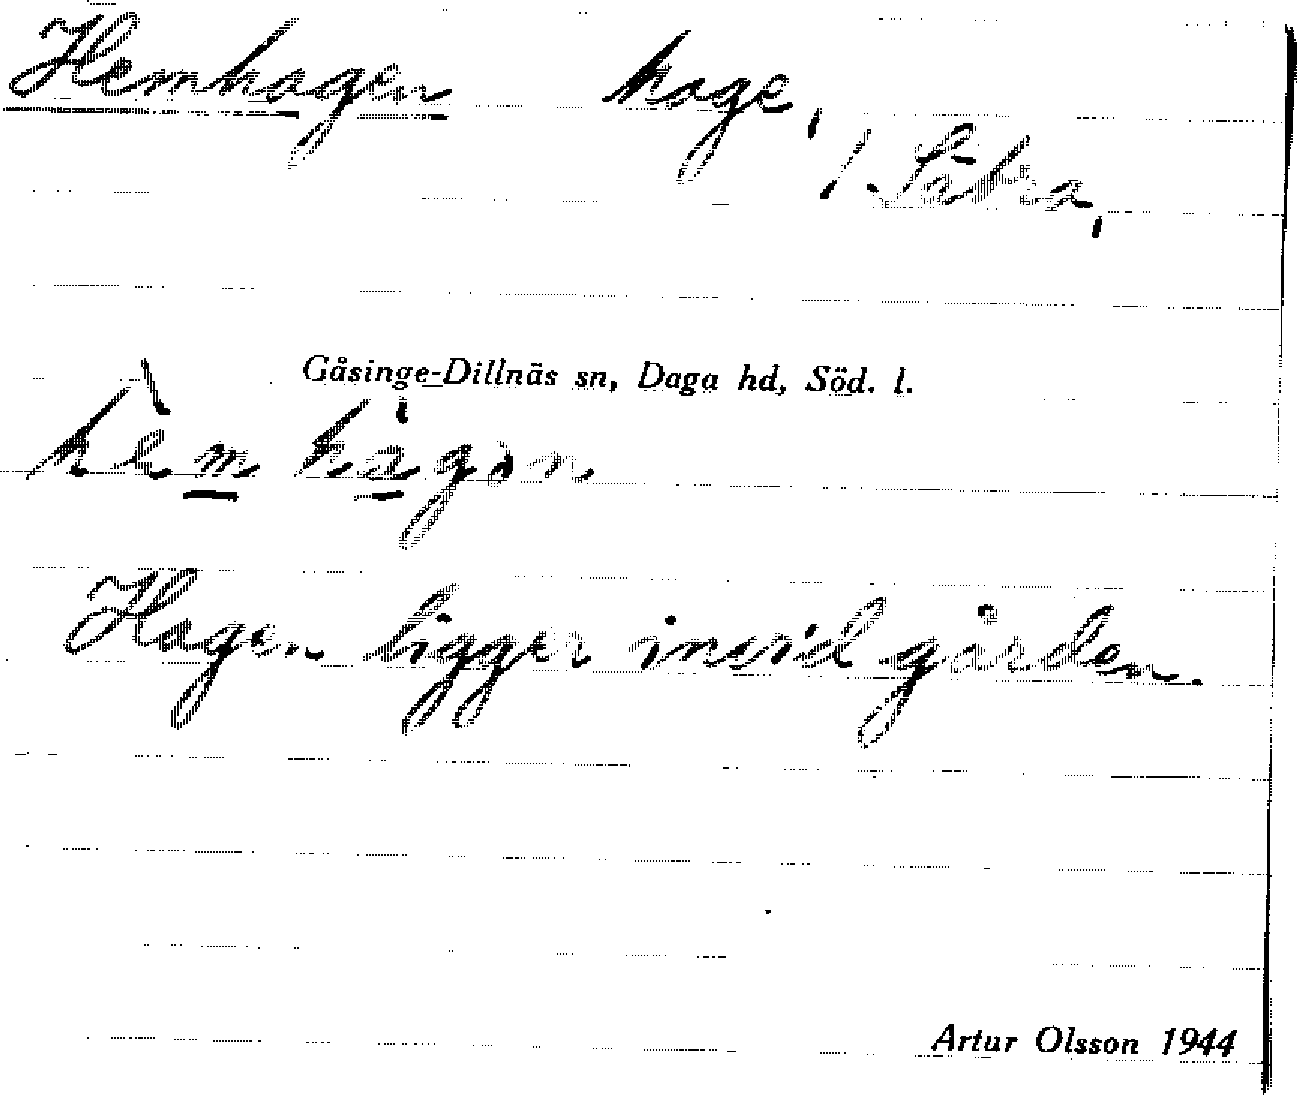 Hemhagen hage,
/. Sätra,
Gåsinge-Dillnäs sn, Daga hd, Söd. l.
hèm hágən
Hagen ligger invid gården.
Artur Olsson 1944